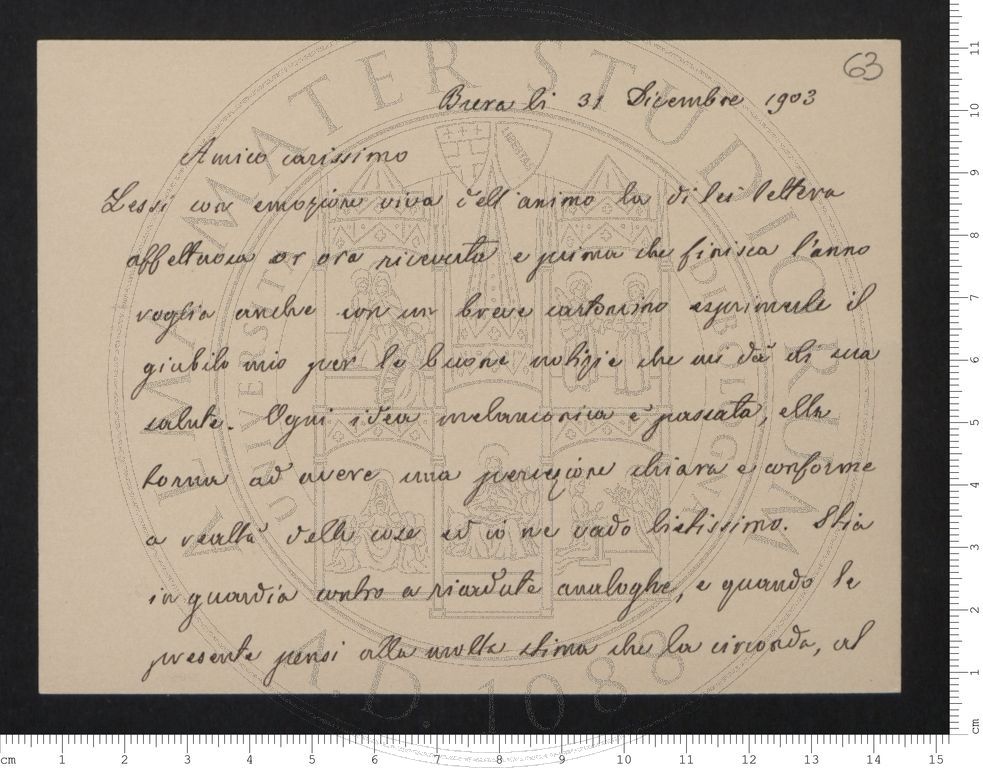 63
Brera li 31 Dicembre 1903
Amico carissimo
Lessi con emozione viva dell'animo la di lei lettera
affettuosa or ora ricevuta e prima che finisca l'anno
voglio anche con un breve cartoncino esprimerle il
giubilo mio per le buone notizie che mi dà di sua
salute. Ogni idea melanconica è passata, ella
torna ad avere una percezione chiara e conforme
a realtà delle cose ed io ne vado lietissimo. Stia
in guardia contro a ricadute analoghe, e quando le
presente pensi alla molta stima che la circonda, al
ALMA MATER STUDIORUM
A.D. 1088
LIBERTAS
cm 1 2 3 4 5 6 7 8 9 10 11 12 13 14 15
cm 1 2 3 4 5 6 7 8 9 10 11